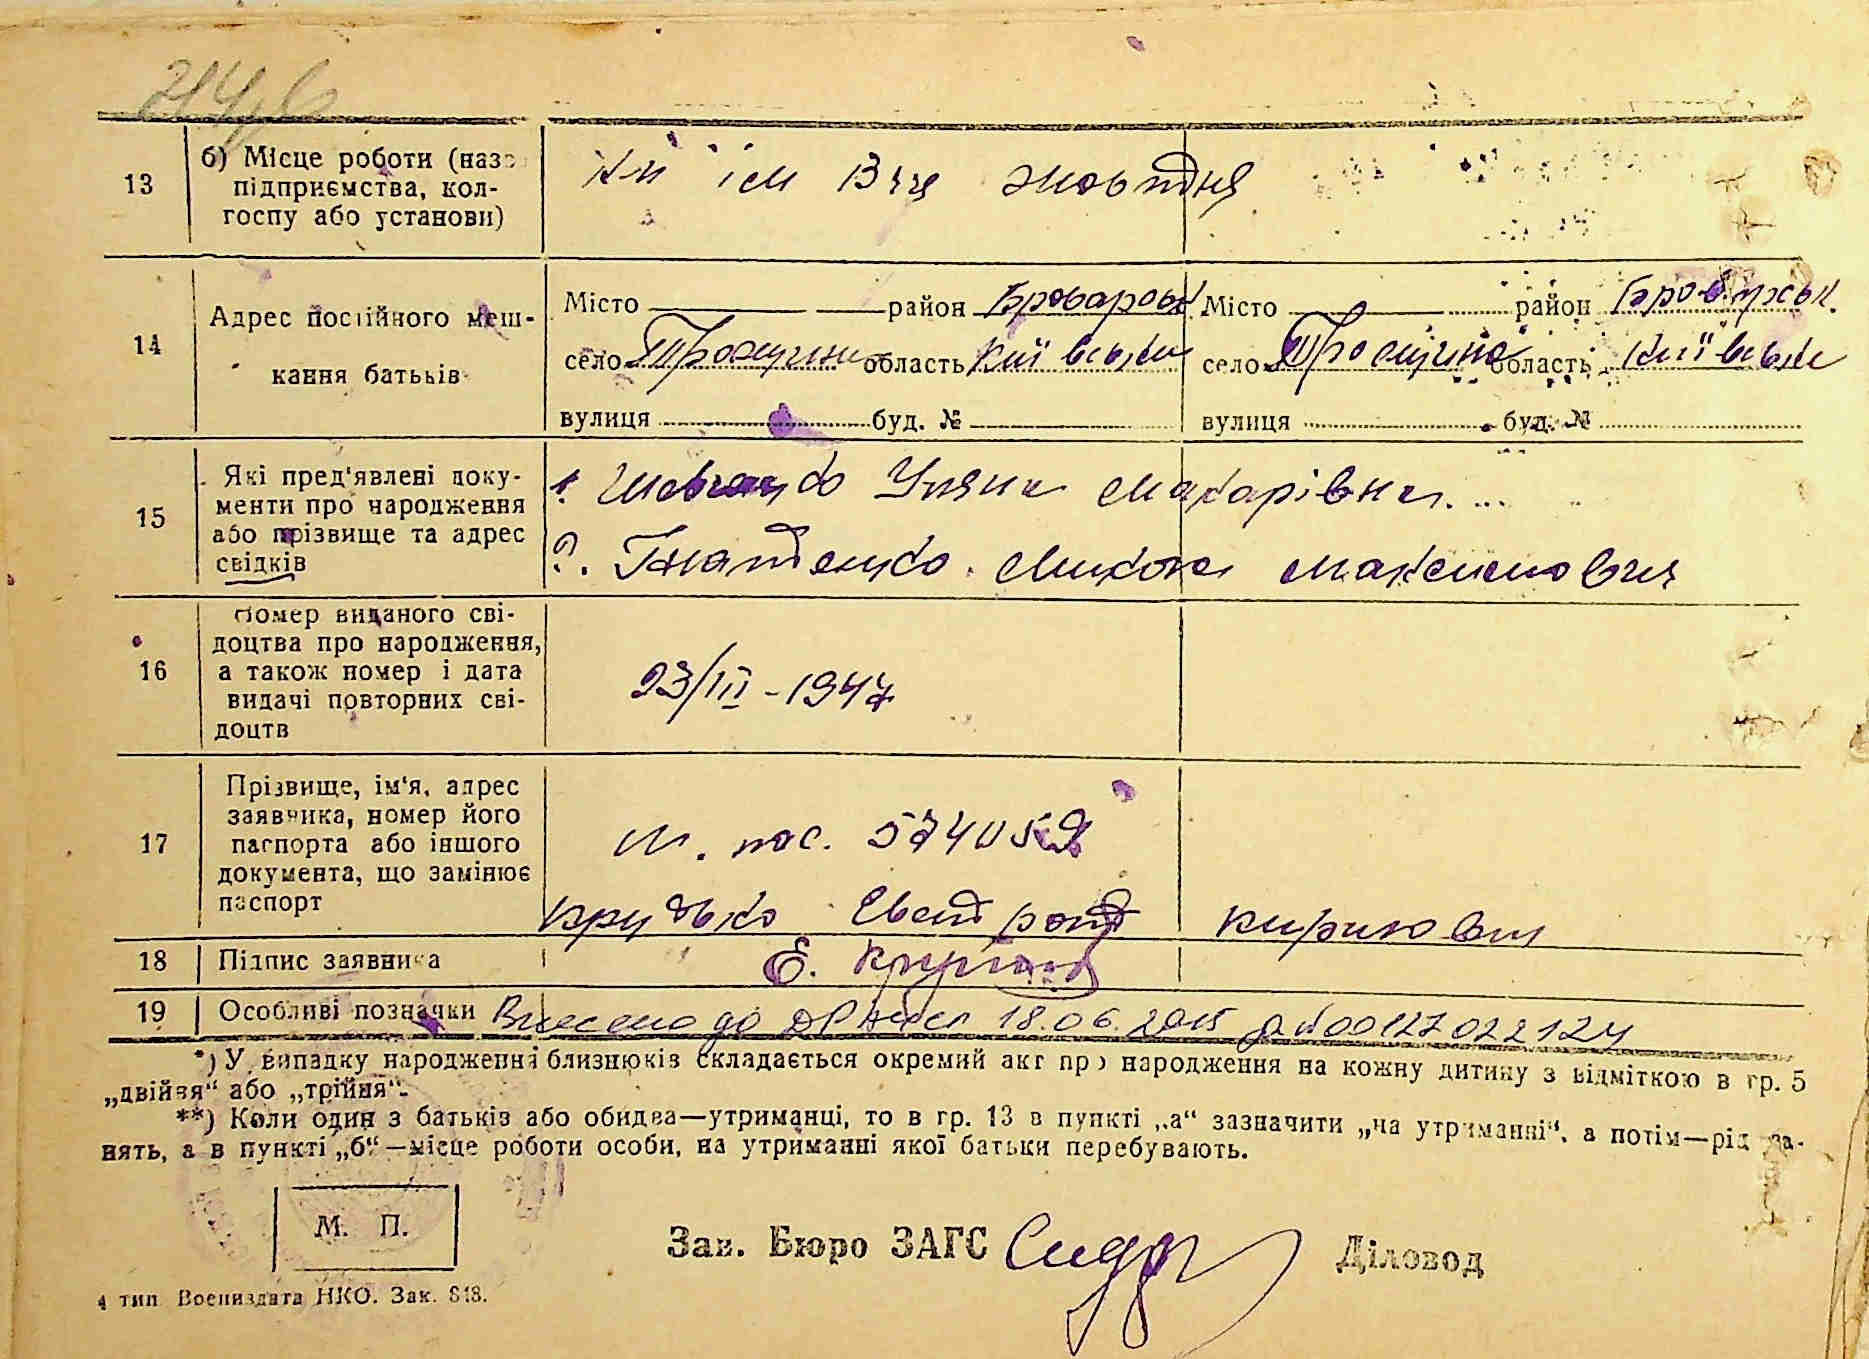 13
б) Місце роботи (назва
підприємства, кол-
госпу або установи)
ім 13 жовтня
14
Адрес постійного меш-
кання батьків
Місто район Броварськ
село Троєщина область Київськ
вулиця буд. №
Місто район Броварськ.
село Троєщина область Київськ
вулиця буд. №
15
Які пред'явлені доку-
менти про народження
або прізвище та адрес
свідків
1. Уляна Макарівна.
2. Гнатенко Микола Максимович
16
Номер виданого сві-
доцтва про народження,
а також номер і дата
видачі повторних сві-
доцтв
23/III - 1947
17
Прізвище, ім'я, адрес
заявника, номер його
паспорта або іншого
документа, що замінює
паспорт
пас. 574052
18
Підпис заявника
Е.
19
Особливі позначки
Внесено до 18.06.2015 00127022124
*) У випадку народження близнюків складається окремий акт про народження на кожну дитину з відміткою в гр. 5
„двійня“ або „трійня“.
**) Коли один з батьків або обидва—утриманці, то в гр. 13 в пункті „а“ зазначити „на утриманні“, а потім—рід за-
нять, а в пункті „б“—місце роботи особи, на утриманні якої батьки перебувають.
М. П.
Зав. Бюро ЗАГС
Діловод
4 тип Воениздата НКО. Зак. 818.